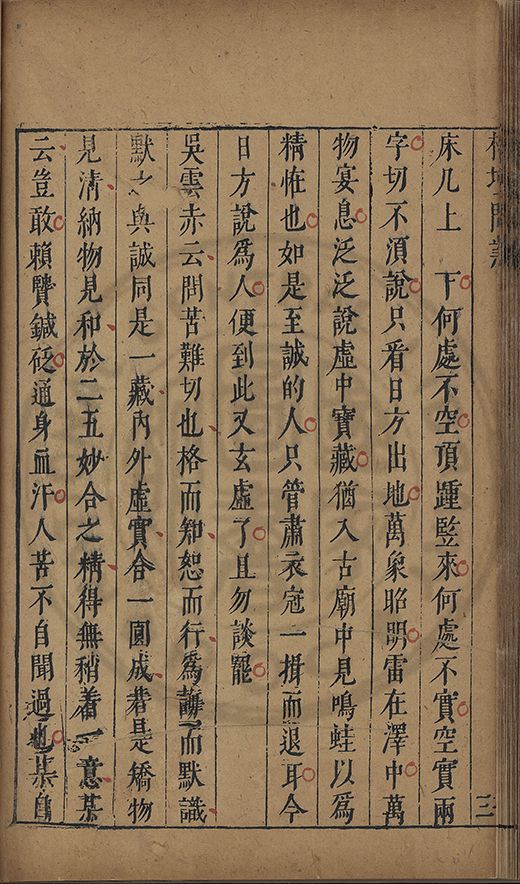 床几上下何處不空頂踵監來何處不實空實兩
字切不須說只看日方出地萬象昭明雷在澤中萬
物宴息泛泛說虛中寶藏猶入古廟中見鳴蛙以爲
精怪也如是至誠的人只管肅衣冠一揖而退耳今
日方說爲人便到此又玄虛了且勿談罷
吳雲赤云問苦難切也格而知恕而行爲靜而默識
默之與誠同是一藏內外虛實合一圓成若是矯物
見清納物見和於二五妙合之精得無稍着一意某
云豈敢賴贒鍼砭通身血汗人苦不自聞過也某自
三